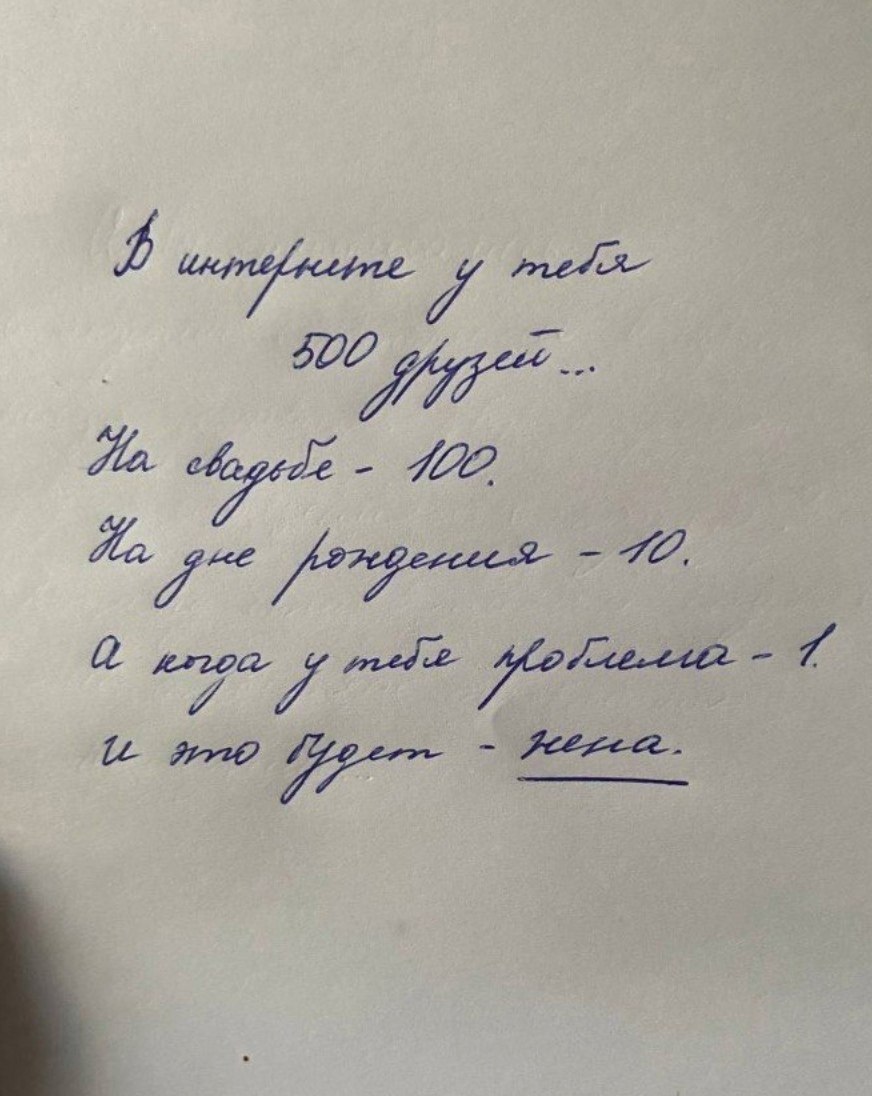 В интернете у тебя
500 друзей...
На свадьбе - 100.
На дне рождения - 10.
А когда у тебя проблема - 1.
И это будет - жена.